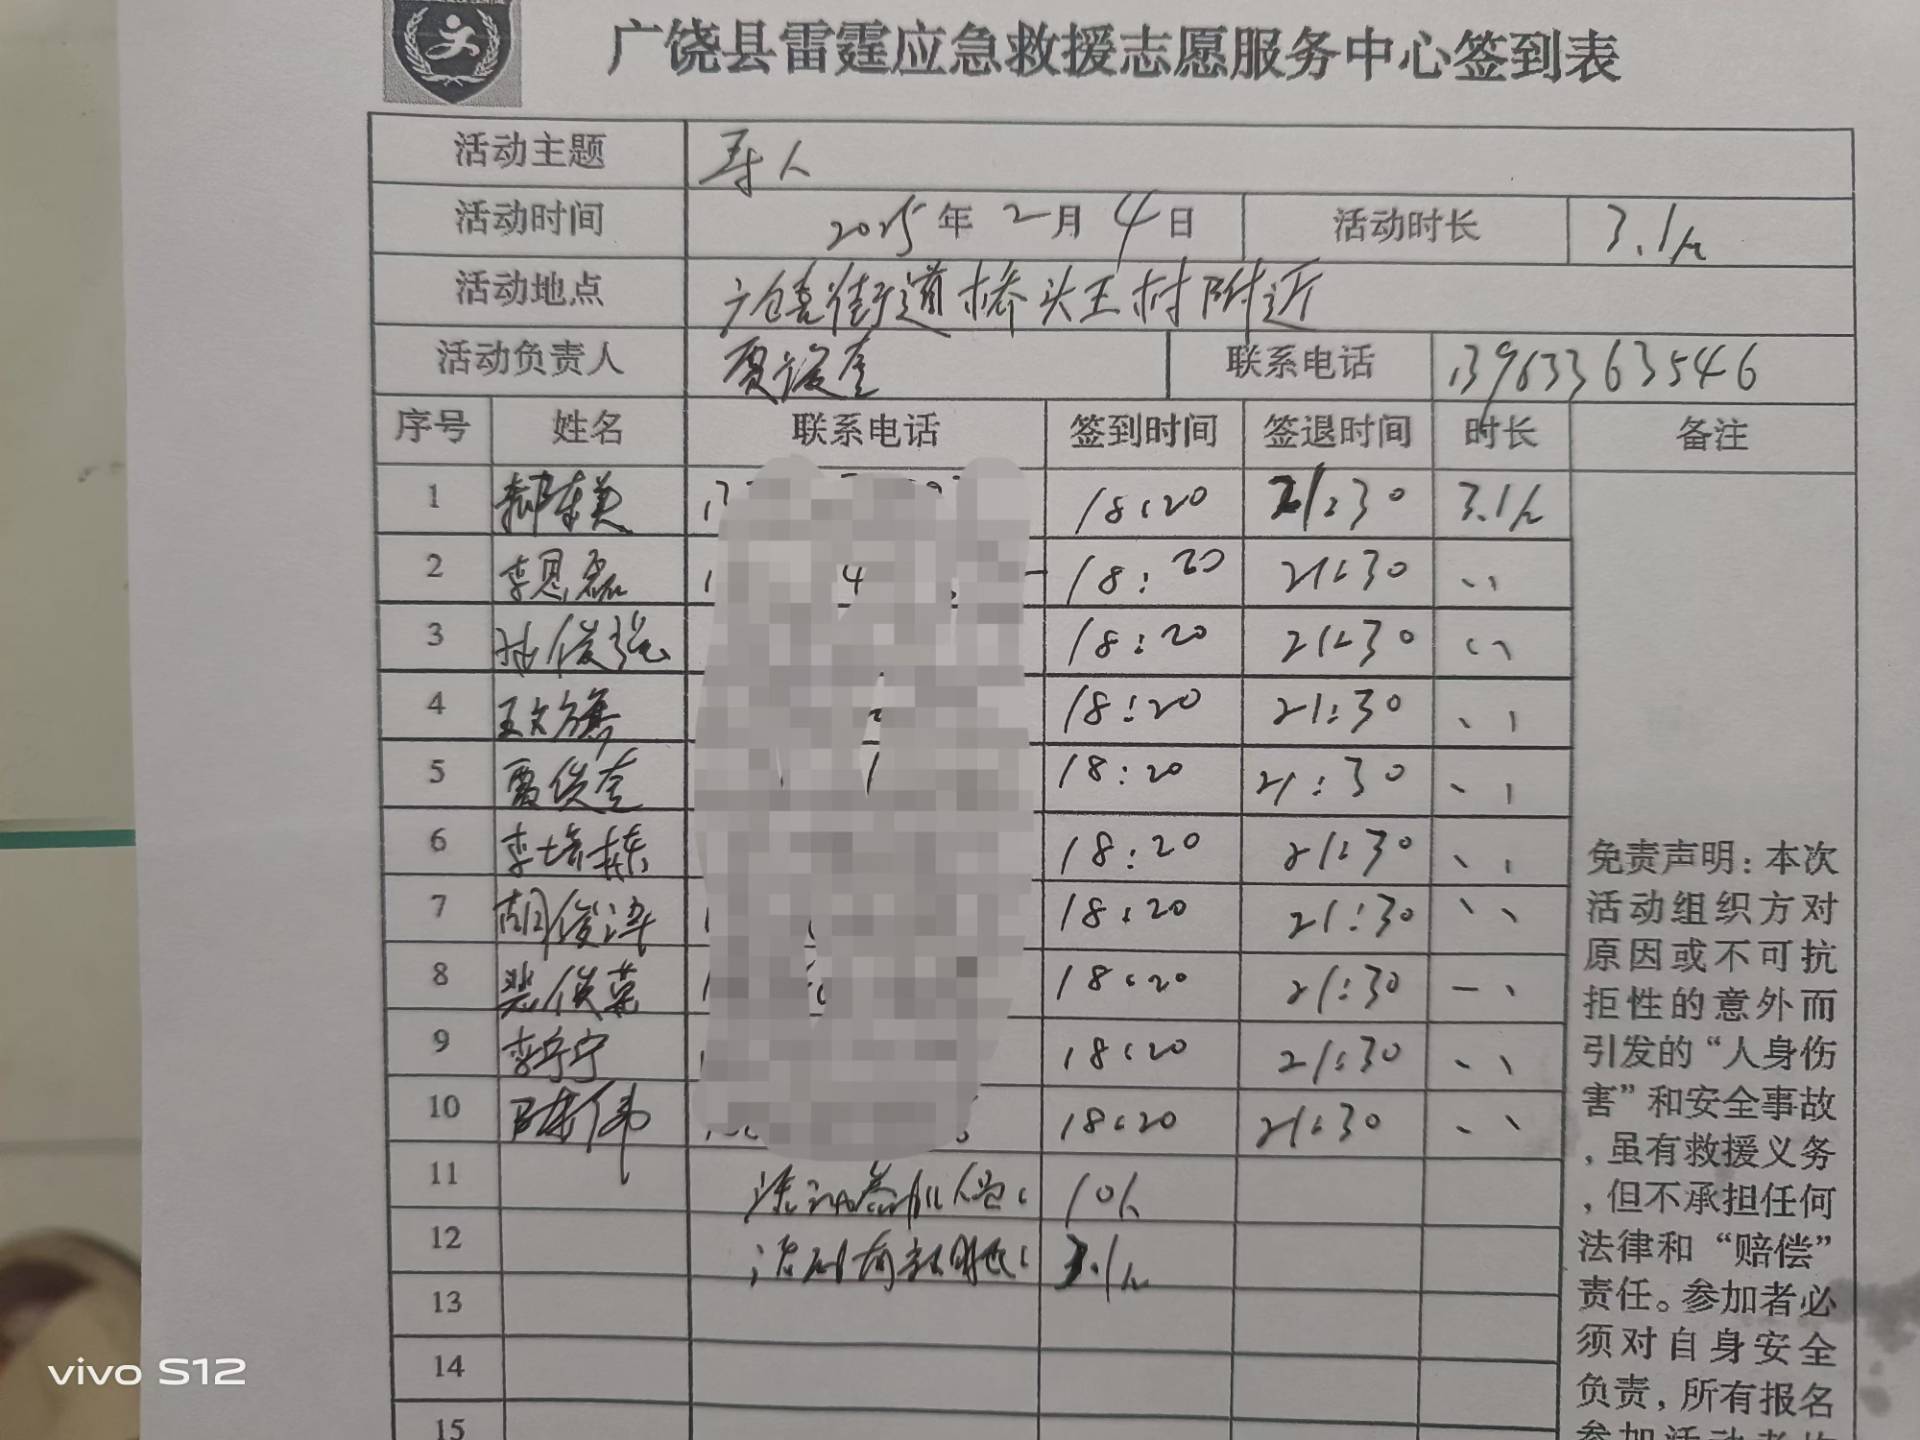 广饶县雷霆应急救援志愿服务中心签到表
活动主题 寻人
活动时间 2025年2月4日 活动时长 3.1h
活动地点 街道桥头王村附近
活动负责人 贾俊奎 联系电话 13963363546
序号 姓名 联系电话 签到时间 签退时间 时长 备注
1 18:20 21:30 3.1h
2 李恩磊 18:20 21:30 、、
3 孙俊强 18:20 21:30 、、
4 王文旗 18:20 21:30 、、
5 贾俊奎 18:20 21:30 、、
6 李培栋 18:20 21:30 、、
7 胡俊泽 18:20 21:30 、、
8 18:20 21:30 、、
9 李宁宁 18:20 21:30 、、
10 陈伟 18:20 21:30 、、
11 活动参加人员: 10人
12 3.1h
13
14
15
免责声明：本次
活动组织方对
原因或不可抗
拒性的意外而
引发的“人身伤
害”和安全事故
，虽有救援义务
，但不承担任何
法律和“赔偿”
责任。参加者必
须对自身安全
负责，所有报名
参加活动者均
vivo S12